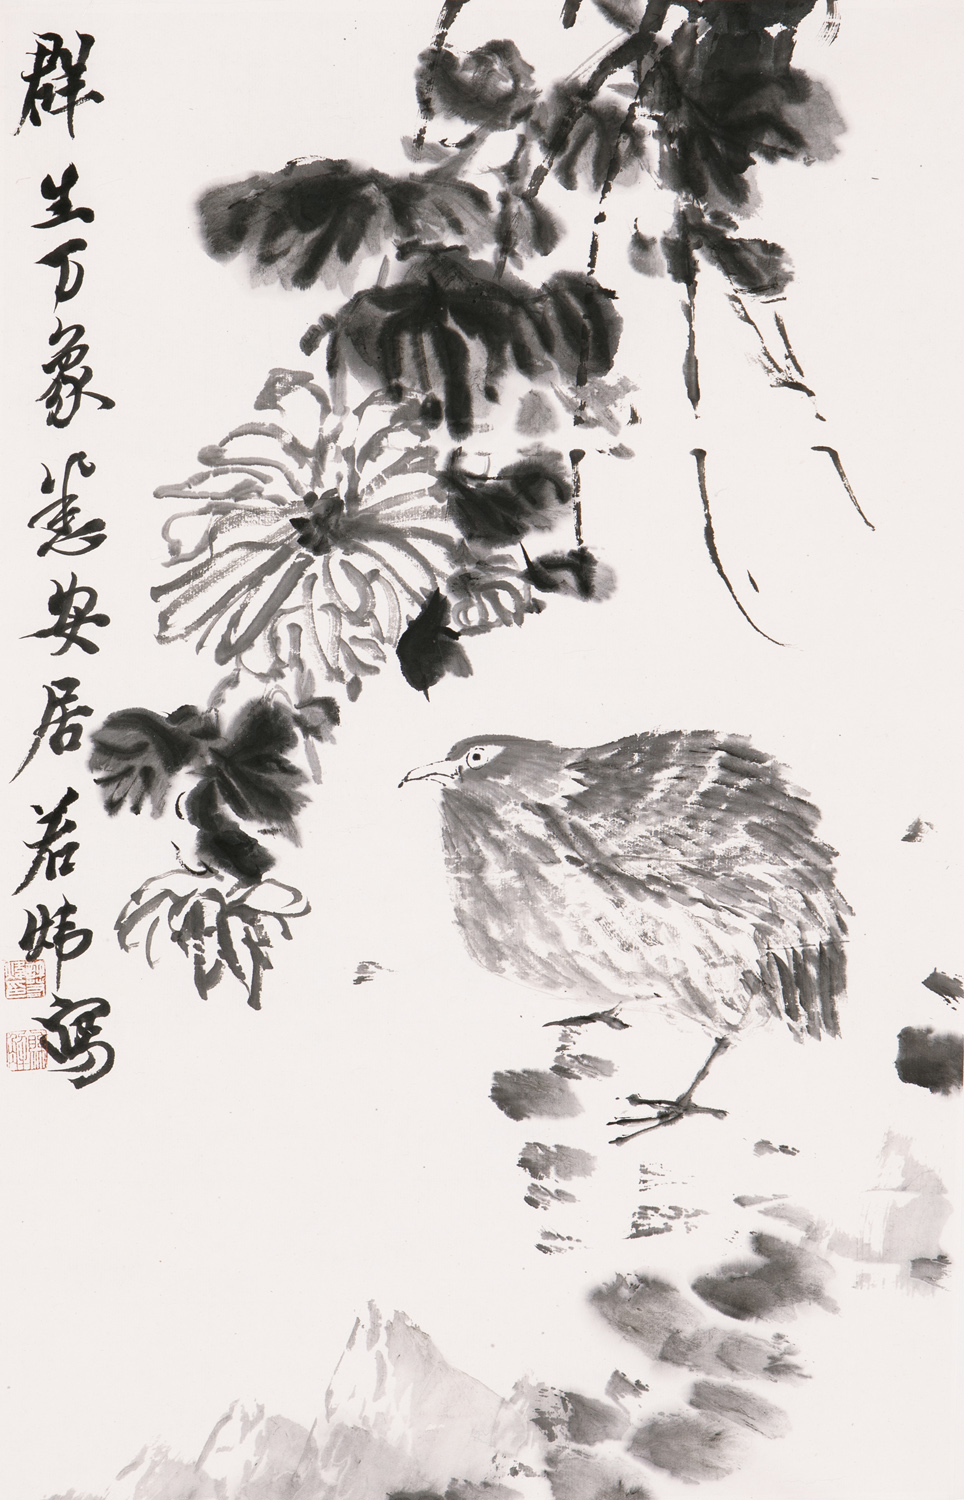 群生万象悉安居若炜寫